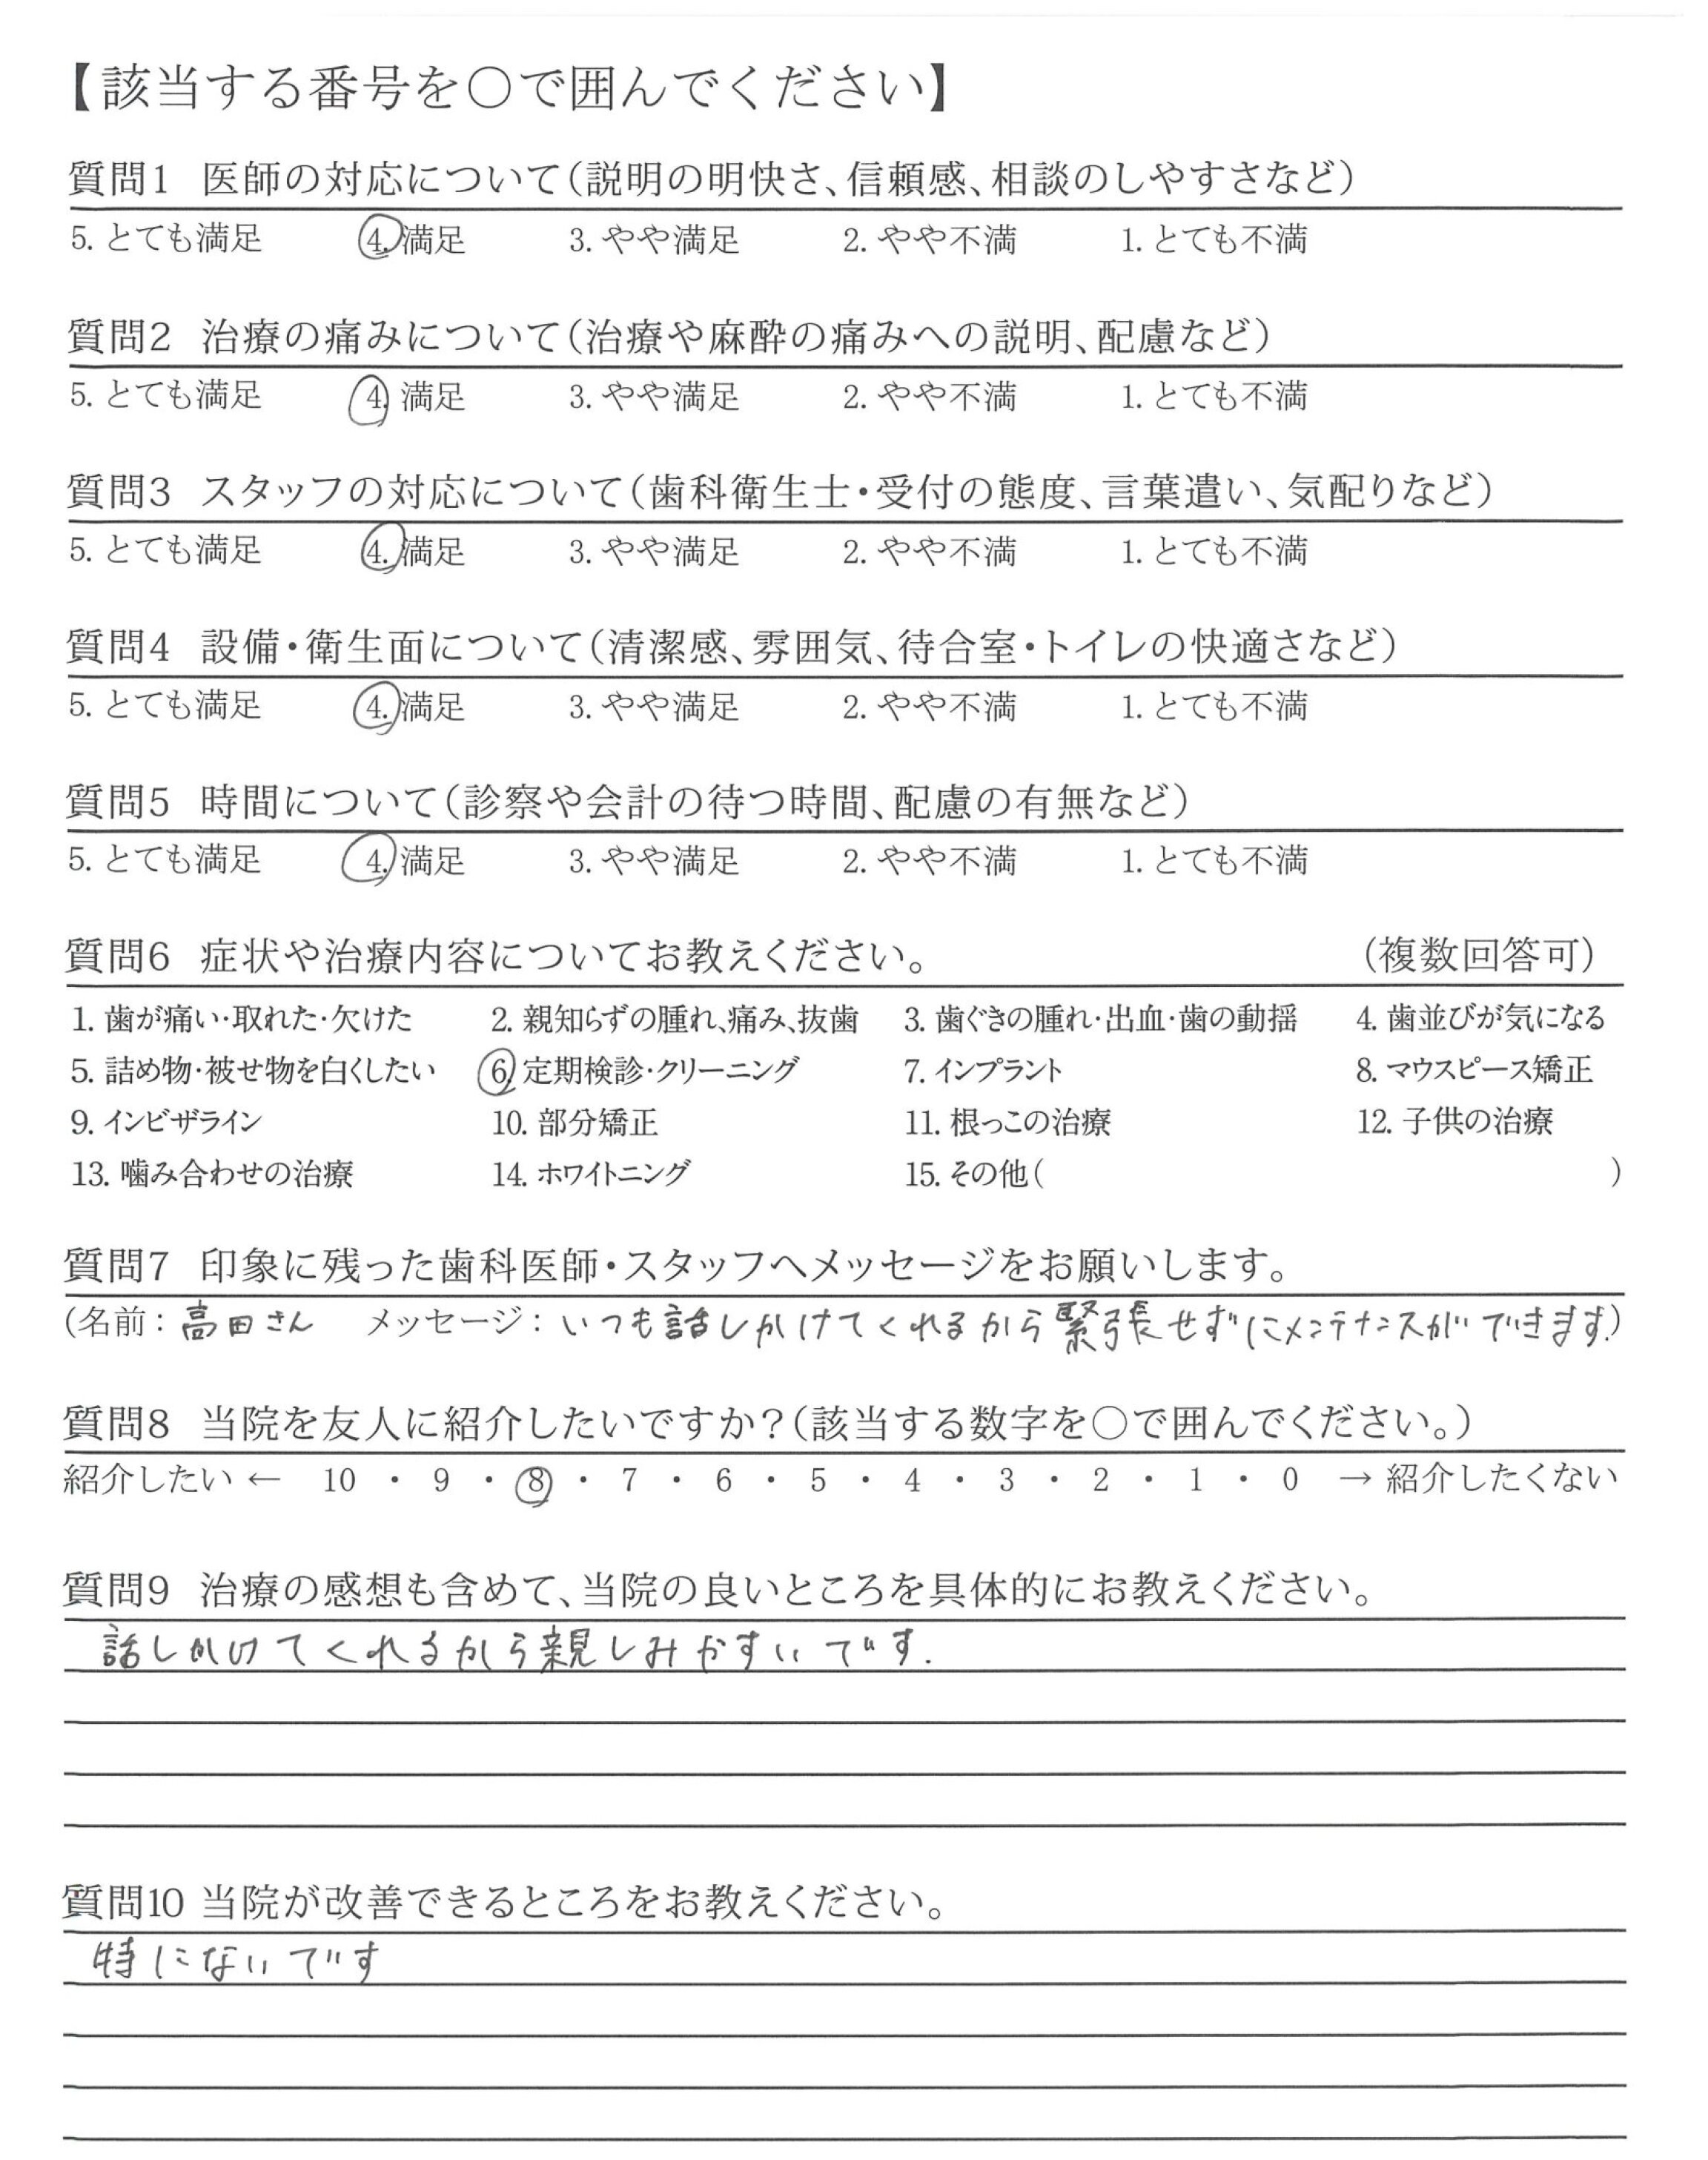 【該当する番号を○で囲んでください】
質問1 医師の対応について(説明の明快さ、信頼感、相談のしやすさなど)
5. とても満足 4. 満足 3. やや満足 2. やや不満 1. とても不満
質問2 治療の痛みについて(治療や麻酔の痛みへの説明、配慮など)
5. とても満足 4. 満足 3. やや満足 2. やや不満 1. とても不満
質問3 スタッフの対応について(歯科衛生士・受付の態度、言葉遣い、気配りなど)
5. とても満足 4. 満足 3. やや満足 2. やや不満 1. とても不満
質問4 設備・衛生面について(清潔感、雰囲気、待合室・トイレの快適さなど)
5. とても満足 4. 満足 3. やや満足 2. やや不満 1. とても不満
質問5 時間について(診察や会計の待つ時間、配慮の有無など)
5. とても満足 4. 満足 3. やや満足 2. やや不満 1. とても不満
質問6 症状や治療内容についてお教えください。 (複数回答可)
1. 歯が痛い・取れた・欠けた 2. 親知らずの腫れ、痛み、抜歯 3. 歯ぐきの腫れ・出血・歯の動揺 4. 歯並びが気になる
5. 詰め物・被せ物を白くしたい 6. 定期検診・クリーニング 7. インプラント 8. マウスピース矯正
9. インビザライン 10. 部分矯正 11. 根っこの治療 12. 子供の治療
13. 噛み合わせの治療 14. ホワイトニング 15. その他( )
質問7 印象に残った歯科医師・スタッフへメッセージをお願いします。
(名前: 高田さん メッセージ: いつも話しかけてくれるから緊張せずにメンテナンスができます.)
質問8 当院を友人に紹介したいですか?(該当する数字を○で囲んでください。)
紹介したい ← 10 ・ 9 ・ 8 ・ 7 ・ 6 ・ 5 ・ 4 ・ 3 ・ 2 ・ 1 ・ 0 → 紹介したくない
質問9 治療の感想も含めて、当院の良いところを具体的にお教えください。
話しかけてくれるから親しみやすいです.
質問10 当院が改善できるところをお教えください。
特にないです